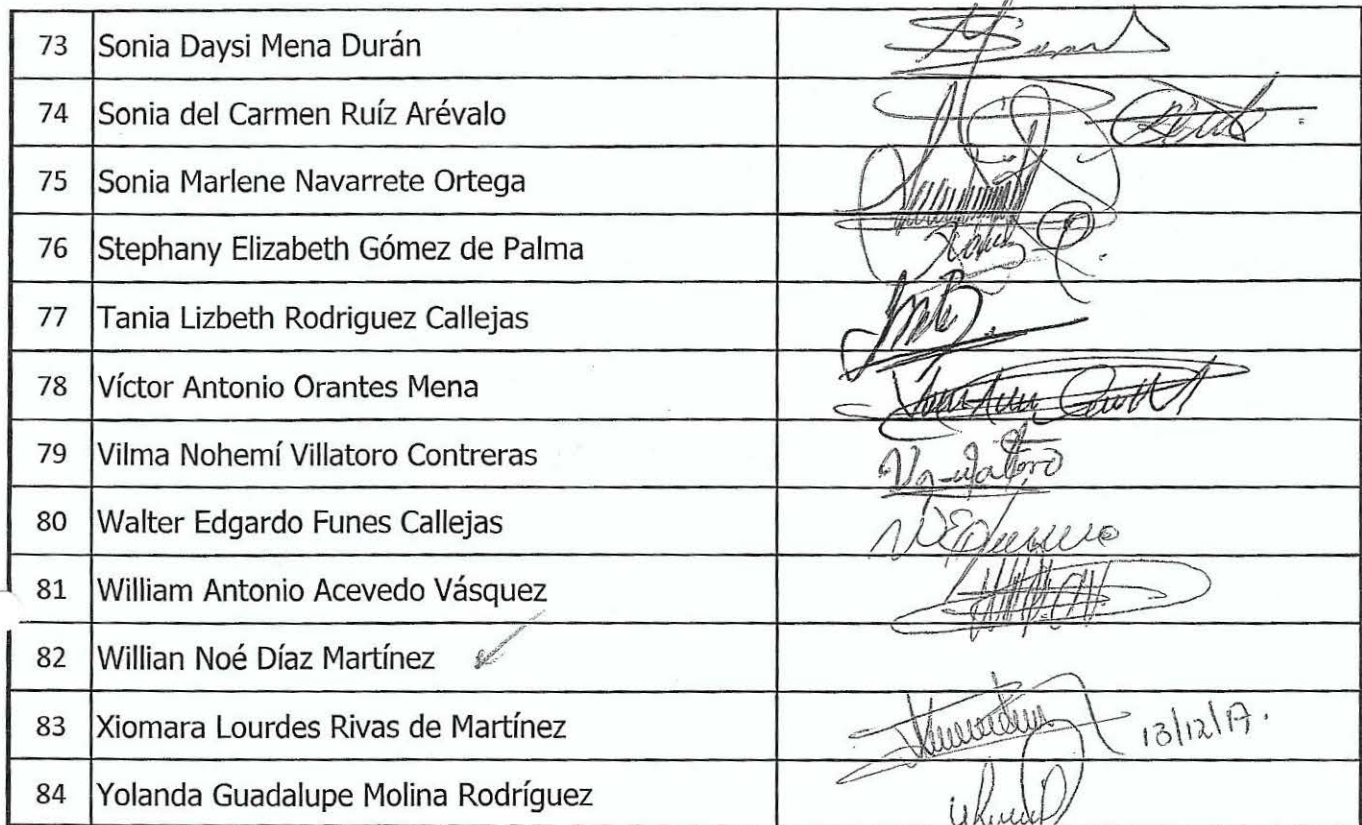 73 Sonia Daysi Mena Durán
74 Sonia del Carmen Ruíz Arévalo
75 Sonia Marlene Navarrete Ortega
76 Stephany Elizabeth Gómez de Palma
77 Tania Lizbeth Rodriguez Callejas
78 Víctor Antonio Orantes Mena
79 Vilma Nohemí Villatoro Contreras
80 Walter Edgardo Funes Callejas
81 William Antonio Acevedo Vásquez
82 Willian Noé Díaz Martínez
83 Xiomara Lourdes Rivas de Martínez 13/12/17.
84 Yolanda Guadalupe Molina Rodríguez